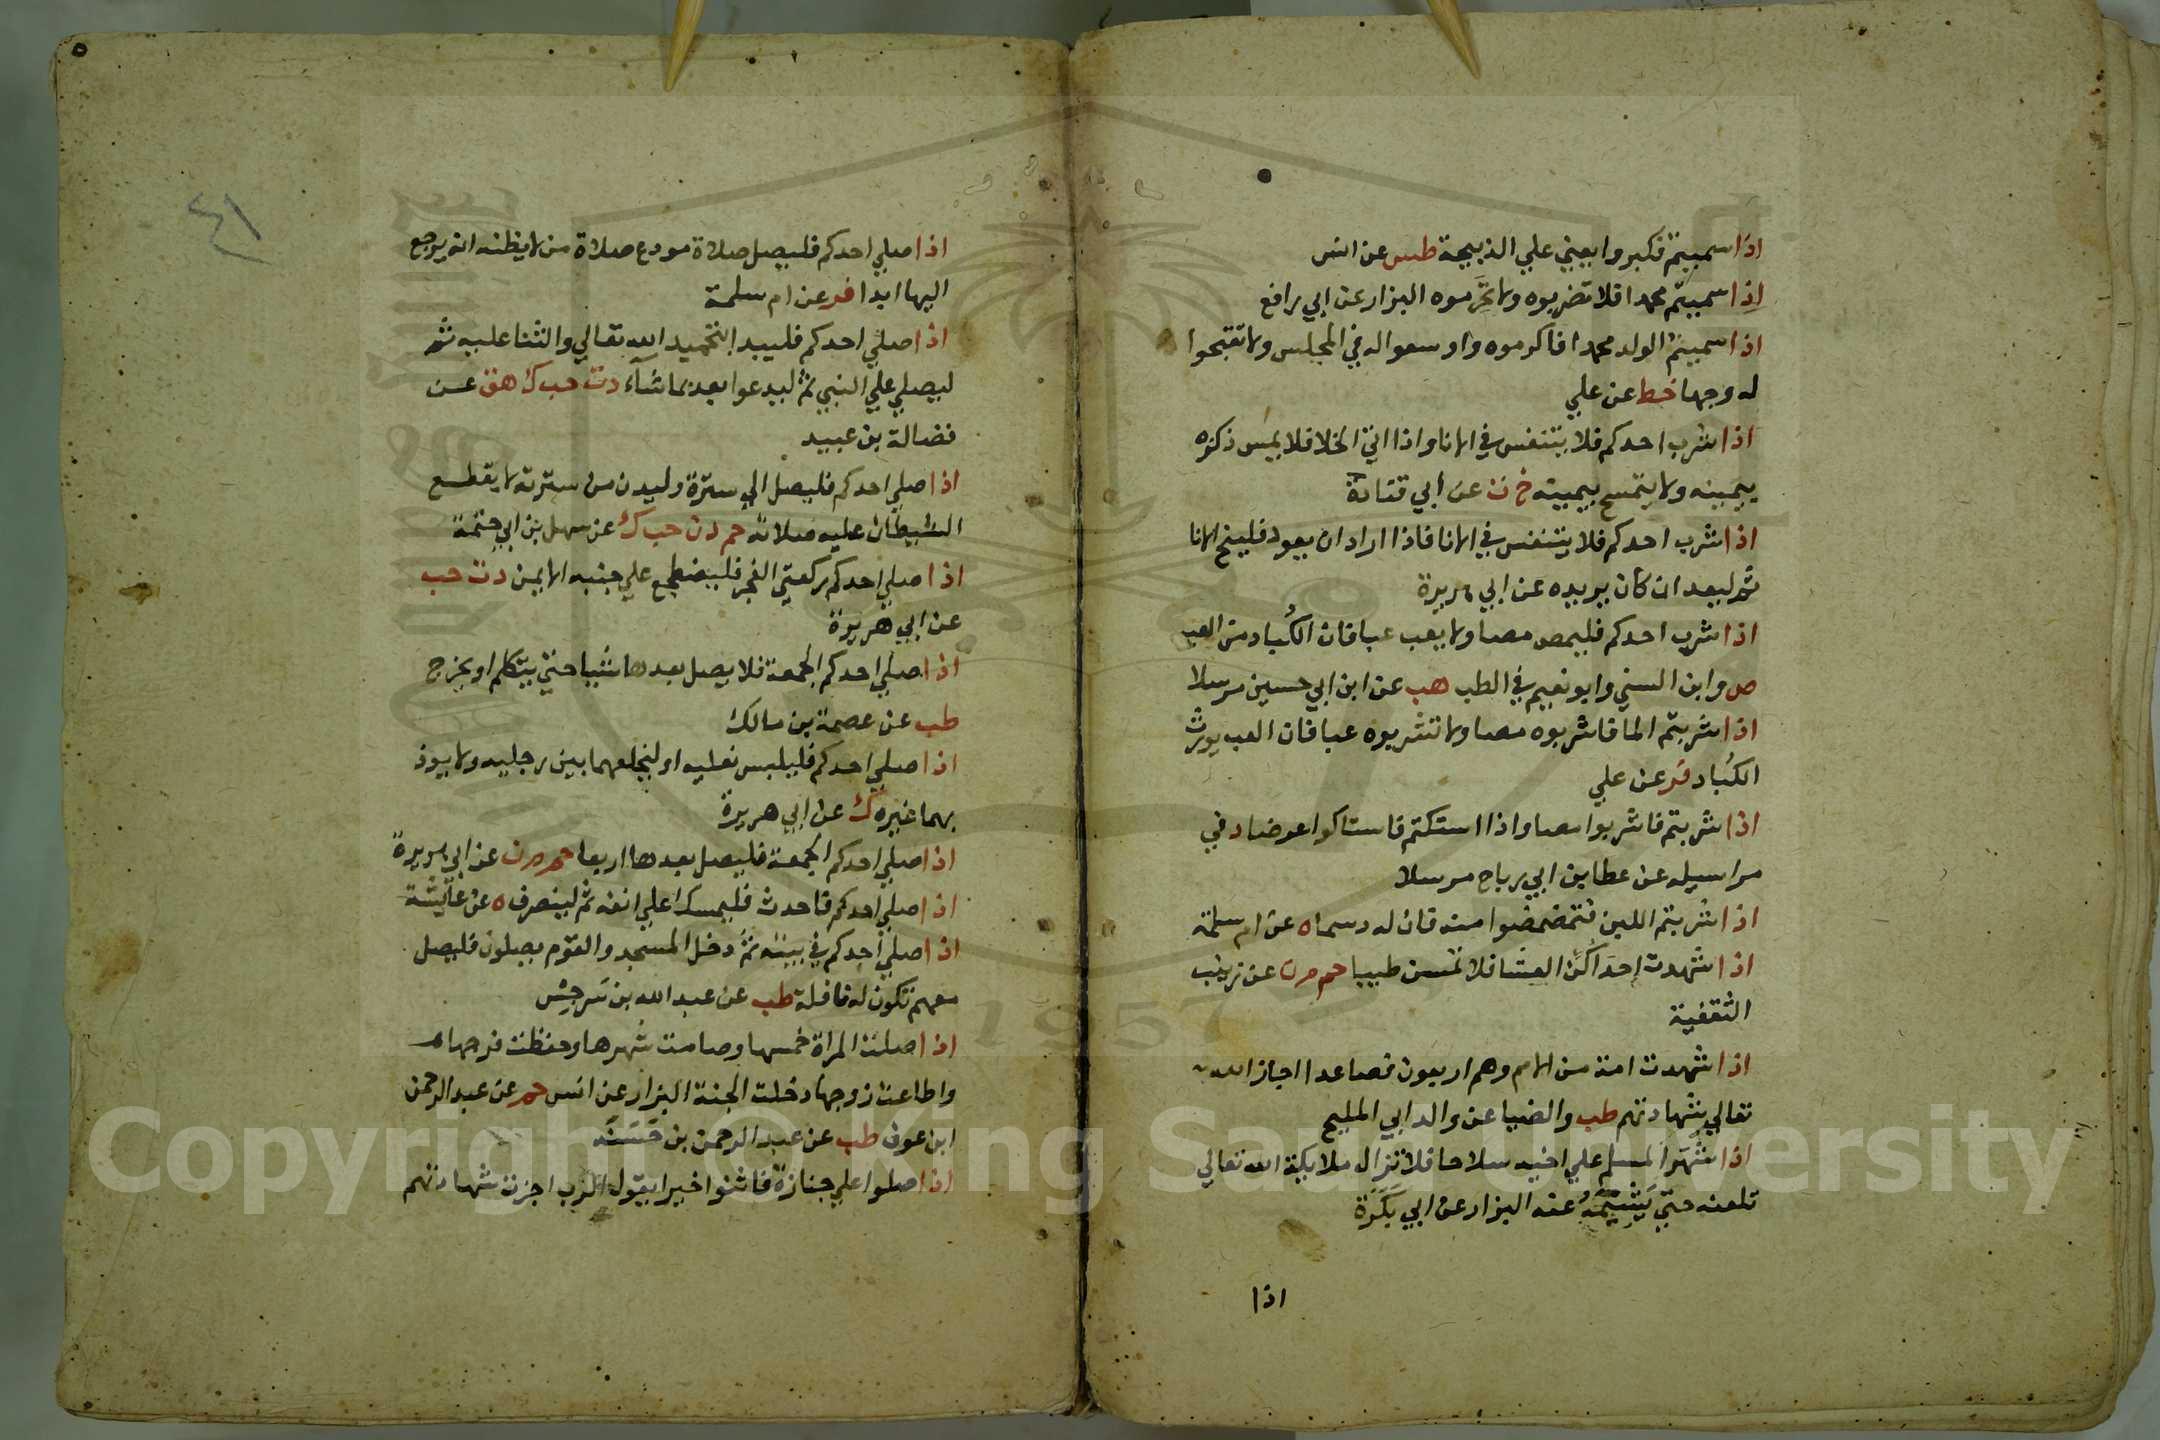 اذا سميتم فكبروا يعني علي الذبيحة طس عن انس
اذا سميتم محمدا فلا تضربوه ولا تحرموه البزار عن ابي رافع
اذا سميتم الولد محمدا فاكرموه واوسعوا له في المجلس ولا تقبحوا
له وجها خط عن علي
اذا شرب احدكم فلا يتنفس في الانا واذا اتي الخلا فلا يمس ذكره
بيمينه ولا يتمسح بيمينه خ ت عن ابي قتادة
اذا شرب احدكم فلا يتنفس في الانا فاذا اراد ان يعود فلينح الانا
ثم ليعد ان كان يريد ه عن ابي هريرة
اذا شرب احدكم فليمص مصا ولا يعب عبا فان الكُباد من العب
ص وابن السني وابو نعيم في الطب هب عن ابن ابي حسين مرسلا
اذا شربتم الما فاشربوه مصا ولا تشربوه عبا فان العب يورث
الكُباد فر عن علي
اذا شربتم فاشربوا مصا واذا استكتم فاستاكوا عرضا د في
مراسيله عن عطا بن ابي رباح مرسلا
اذا شربتم اللبن فتمضمضوا منه فان له دسما ه عن ام سلمة
اذا شهدت إحداكُنّ العشا فلا تمسن طيبا حم م ن عن زينب
الثقفية
اذا شهدت امة من الامم وهم اربعون فصاعدا اجاز الله
تعالي شهادتهم طب والضيا عن والد ابي المليح
اذا شهَر المسلم علي اخيه سلاحا فلا تزال ملايكة الله تعالي
تلعنه حتي يَشِيمَهُ عنه البزار عن ابي بَكَرَة
اذا
٤١
اذا صلي احدكم فليصل صلاة مودع صلاة من لا يظن انه يرجع
اليها ابدا فر عن ام سلمة
اذا صلي احدكم فليبدا بتحميد الله تعالي والثنا عليه ثم
ليصلي علي النبي ثم ليدعوا بعد بما شآء د ت حب ك هق عن
فضالة بن عبيد
اذا صلي احدكم فليصل الي سترة وليدن من سترته لا يقطع
الشيطان عليه صلاته حم د ن حب ك عن سهل بن ابي حثمة
اذا صلي احدكم ركعتي الفجر فليضطجع علي جنبه الايمن د ت حب
عن ابي هريرة
اذا صلي احدكم الجمعة فلا يصل بعدها شيا حتي يتكلم او يخرج
طب عن عصمة بن مالك
اذا صلي احدكم فليلبس نعليه او ليخلعهما بين رجليه ولا يوذ
بهما غيره ك عن ابي هريرة
اذا صلي احدكم الجمعة فليصل بعدها اربعا حم م ن عن ابي هريرة
اذا صلي احدكم فاحدث فليمسك علي انفه ثم لينصرف ه عن عائشة
اذا صلي أحدكم في بيته ثمَّ دخل المسجد والقوم يصلون فليصل
معهم تكون له نافلة طب عن عبد الله بن سَرجِس
اذا صلت المراة خمسها وصامت شهرها وحفظت فرجها
واطاعت زوجها دخلت الجنة البزار عن انس حم عن عبد الرحمن
ابن عوف طب عن عبد الرحمن بن حَسَنَه
اذا صلوا علي جنازة فاثنوا خيرا يقول الرب اجزت شهادتهم
1957
Copyright © King Saud University